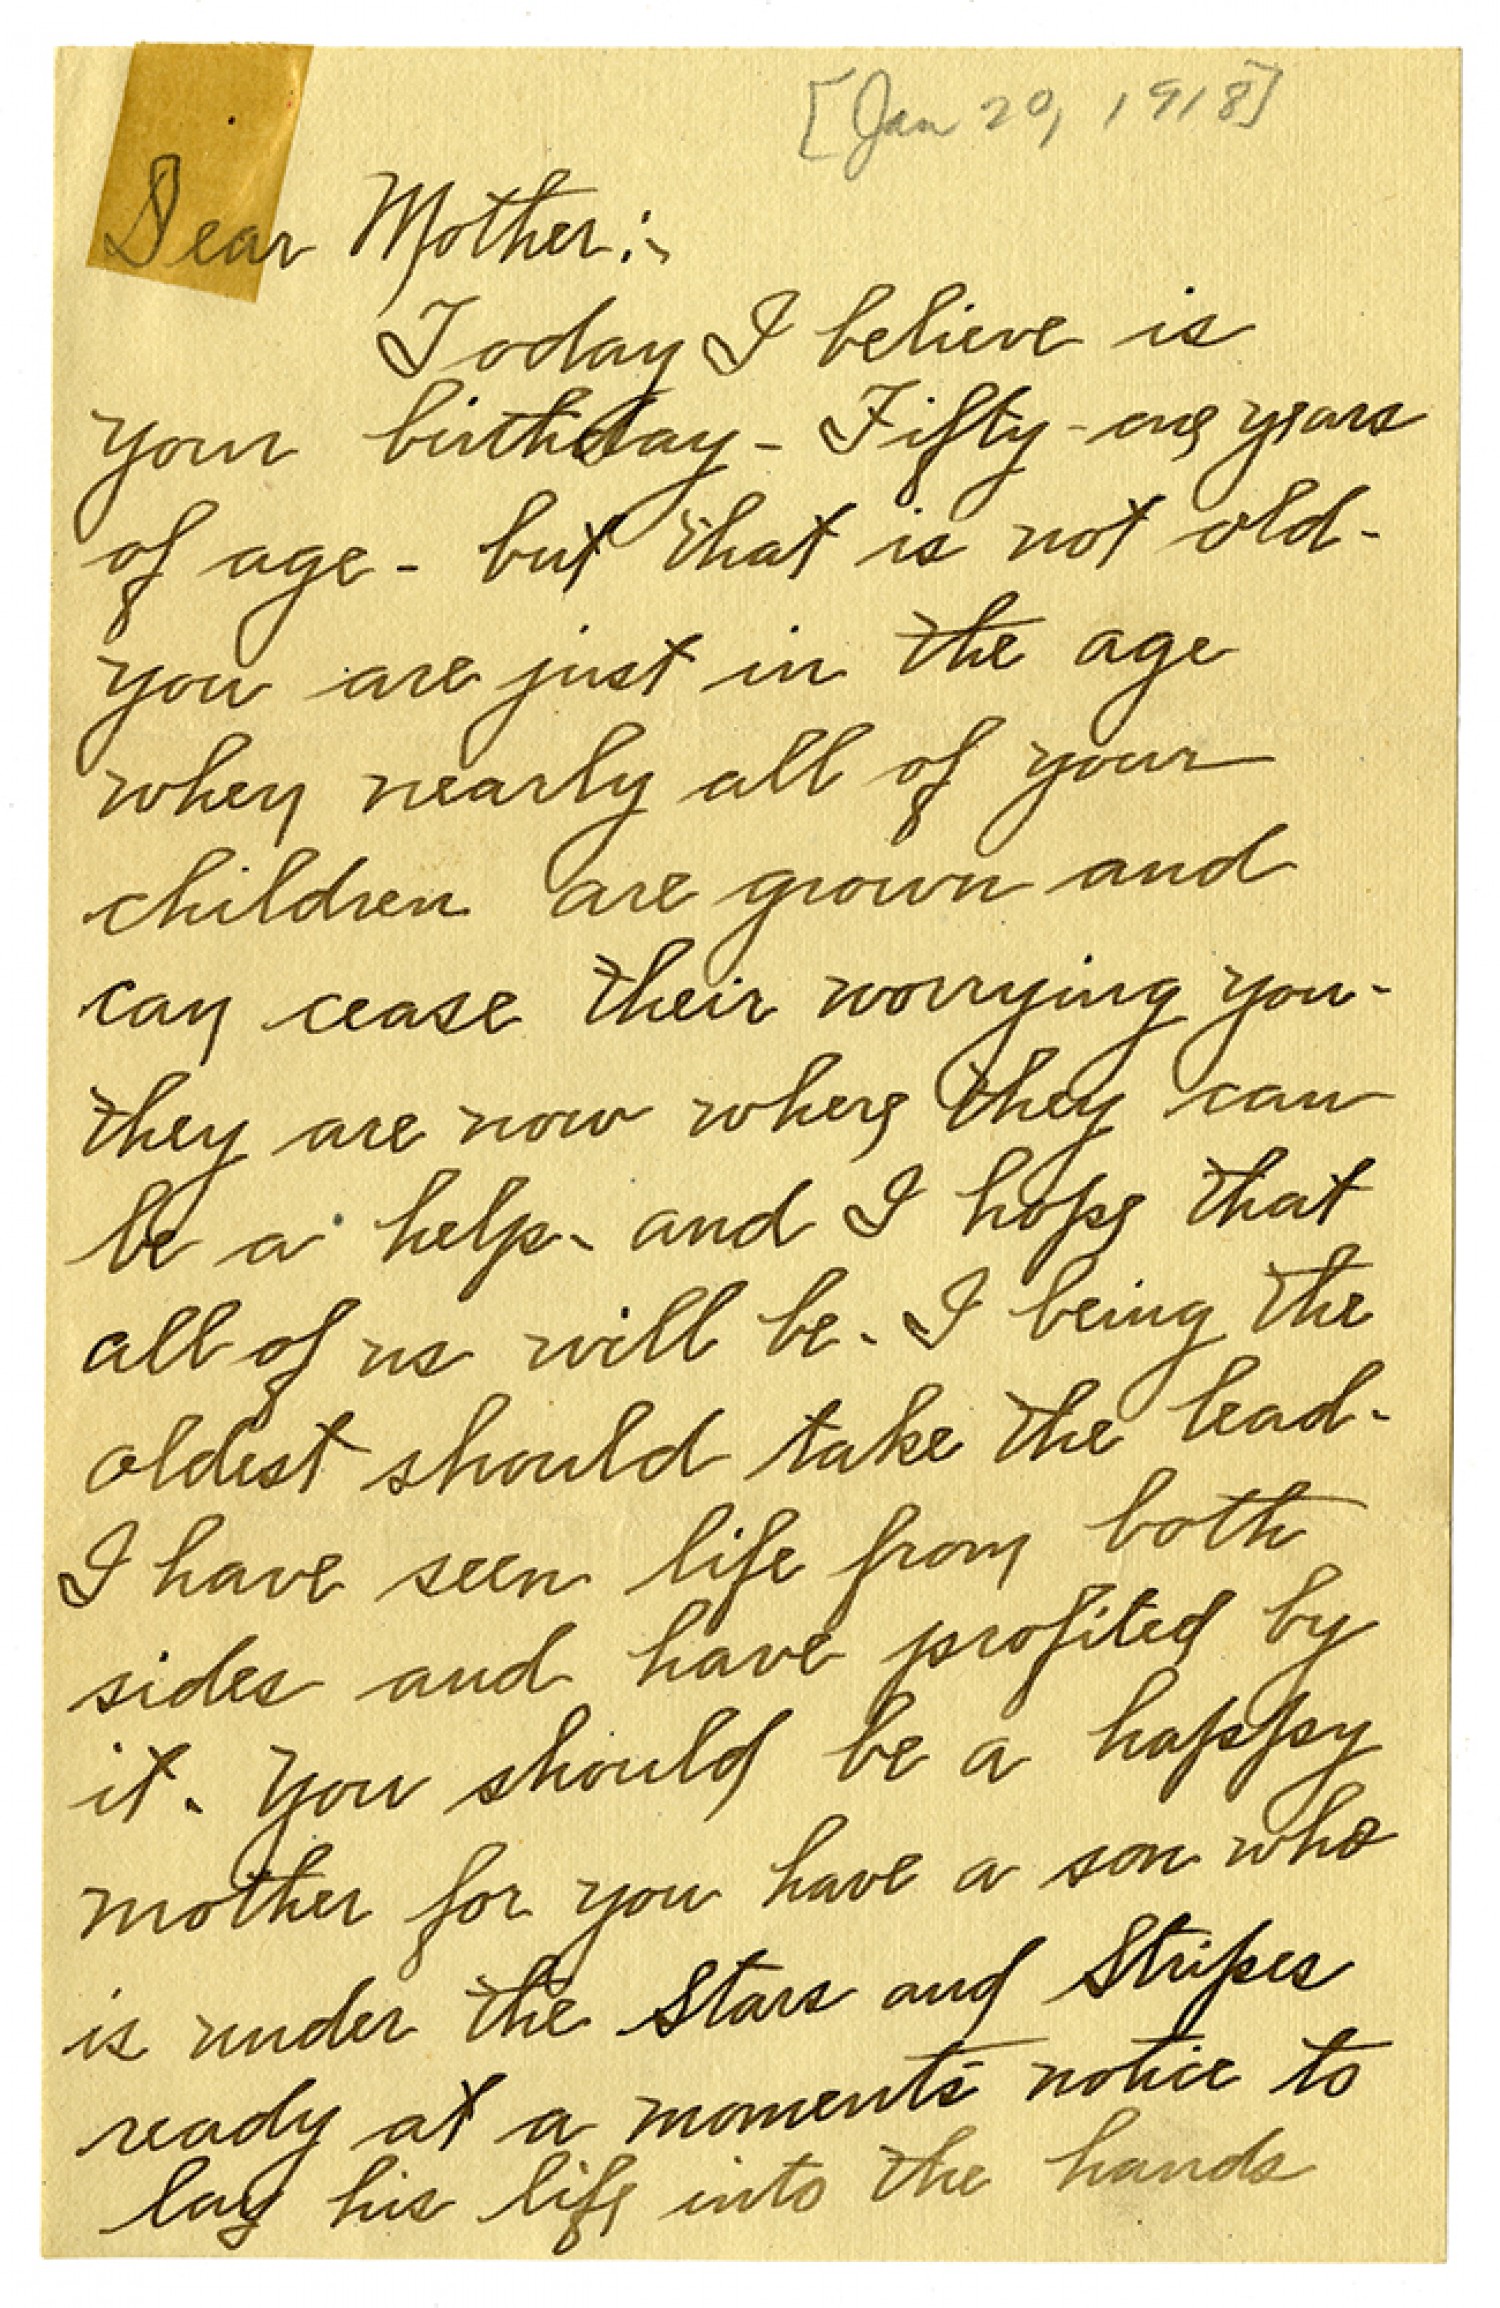 [Jan 20, 1918]
Dear Mother:-
Today I believe is
your birthday - Fifty-one years
of age - but that is not old -
you are just in the age
when nearly all of your
children are grown and
can cease their worrying you -
they are now where they can
be a help - and I hope that
all of us will be. I being the
oldest should take the lead -
I have seen life from both
sides and have profited by
it. You should be a happy
mother for you have a son who
is under the Stars and Stripes
ready at a moments notice to
lay his life into the hands